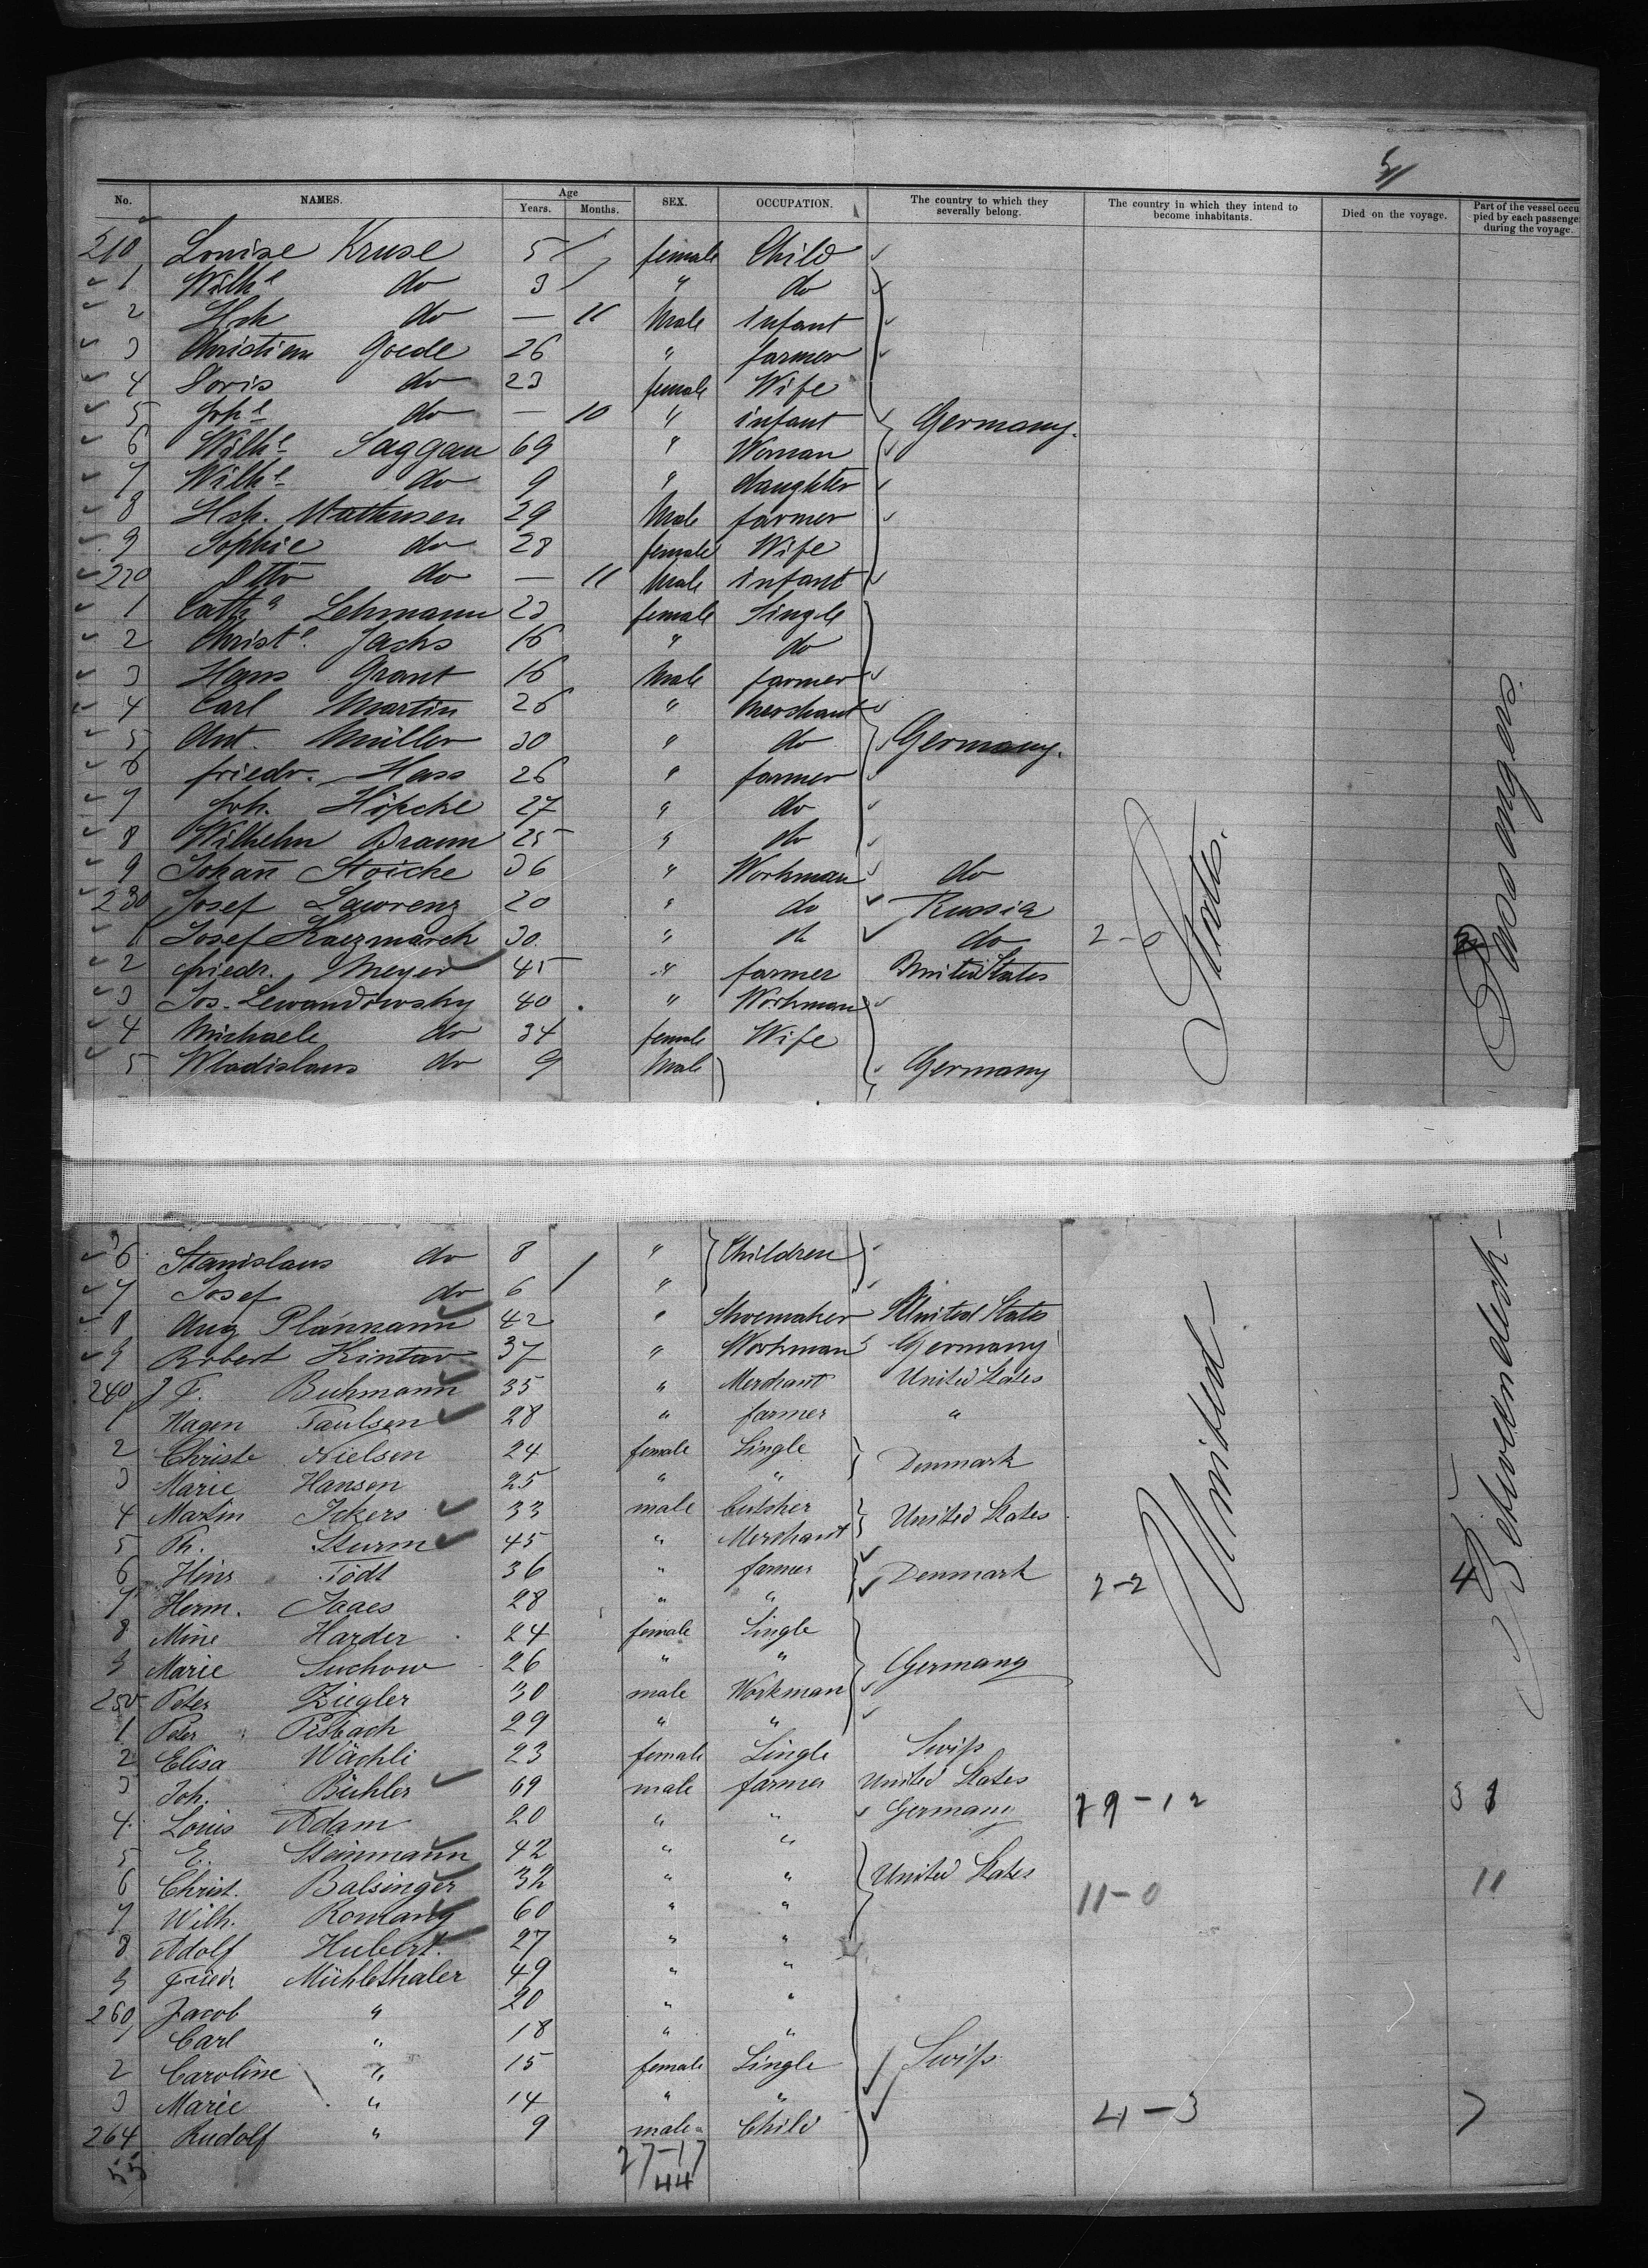 5/
No. NAMES. Age Years. Months. SEX. OCCUPATION. The country to which they severally belong. The country in which they intend to become inhabitants. Died on the voyage. Part of the vessel occupied by each passenger during the voyage.
210 Louise Kruse 5 female Child
1 Wilhe do 3 " do
2 Hch do — 11 Male infant
3 Christian Goede 26 " farmer
4 Doris do 23 female Wife
5 Johe do — 10 " infant Germany.
6 Wilhe Saggau 69 " Woman
7 Wilhe do 9 " daughter
8 Hch. Mathusen 29 Male farmer
9 Sophie do 28 female Wife
220 Otto do — 11 Male infant
1 Catha Lehmann 23 female Single
2 Christe. Jachs 16 " do
3 Hans Grant 16 Male farmer
4 Carl Martin 26 " Merchant
5 Ant. Müller 30 " do Germany.
6 friedr. Hass 26 " farmer
7 Joh. Höpche 27 " do
8 Wilhelm Braun 25 " do
9 Johañ Stoiche 36 " Workman do
230 Josef Lawrenz 20 " do Russia
1 Josef Kaczmarek 30 " do do 2-0
2 friedr. Meyer 45 " farmer United States
3 Jos. Lewandowsky 40 " Workman
4 Michaele do 34 female Wife
5 Wladislaus do 9 Male Germany
States.
Passengers.
36 Stanislaus do 8 " Children
7 Josef do 6 "
8 Aug Planmann 42 " Shoemaker United States
9 Robert Kintav 37 " Workman Germany
240 J F. Buhmann 35 " Merchant United States
1 Hagen Paulsen 28 " farmer "
2 Christe Nielsen 24 female Single Denmark
3 Marie Hansen 25 " "
4 Martin Ickers 33 male Butsher United States
5 Th. Sturm 45 " Merchant
6 Hinr Tödt 36 " farmer Denmark 2-2 4
7 Herm. Jaaes 28 " "
8 Mine Harder 24 female Single
9 Marie Suchow 26 " " Germany
250 Peter Ziegler 30 male Workman
1 Peter Pisbach 29 " "
2 Elisa Wächli 23 female Single Swiss
3 Joh. Bühler 69 male farmer United States
4 Louis Adam 20 " " Germany 19-12 31
5 E. Steinmann 42 " "
6 Christ. Balsinger 32 " " United States 11-0 11
7 Wilh. Romang 60 " "
8 Adolf Hubert. 27 " "
9 Friedr Mühlethaler 49 " "
260 Jacob " 20 " "
1 Carl " 18 " "
2 Caroline " 15 female Single Swiss
3 Marie " 14 " "
264 Rudolf " 9 male Child 4-3 7
55 27-17
44
United
Betweendeck